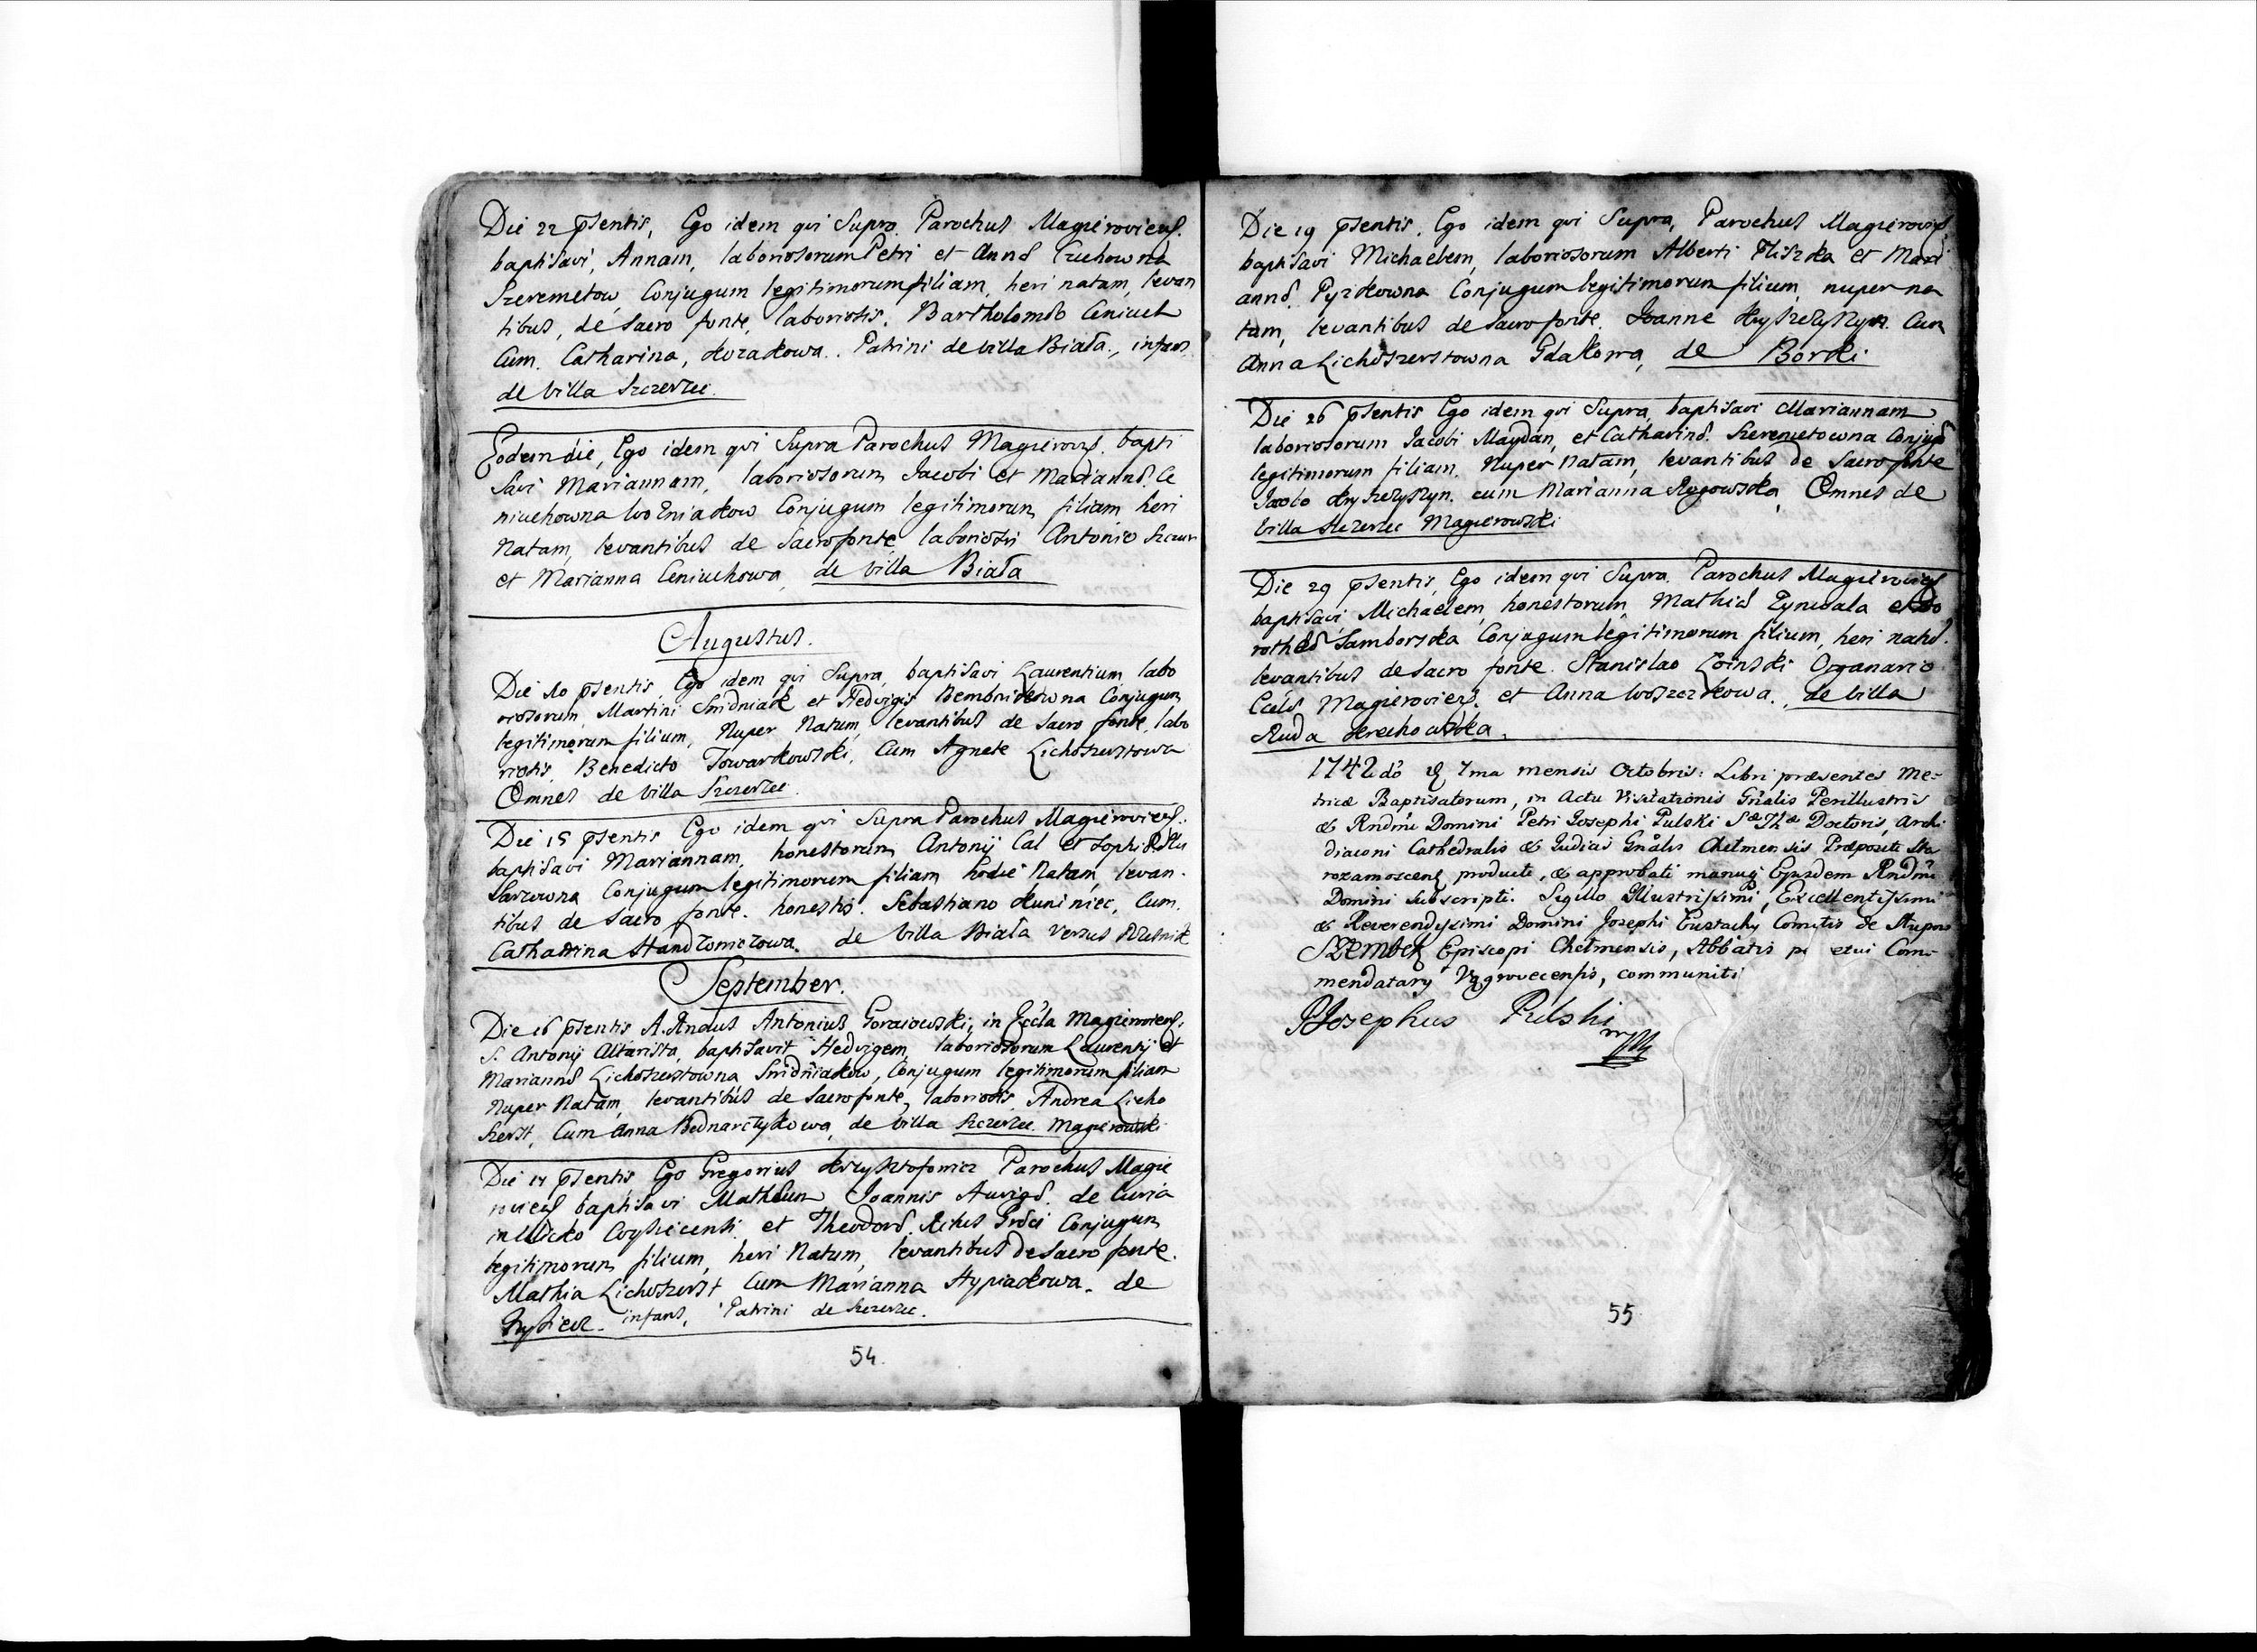 Die 22 psentis, Ego idem qvi Supra Parochus Magieroviens.
baptisavi, Annam, laboriosorum Petri et Annæ
Szeremetow Conjugum legitimorum filiam, heri natam, levan
tibus, de Sacro fonte, laboriosis. Bartholomæo Ceniuch
Cum Catharina, Kozakowa. Patrini de villa Biała, infans
de villa Szczerzec.
Eodem die, Ego idem qvi Supra Parochus Magierovs. bapti
savi Mariannam, laboriosorum Jacobi et Mariannæ Ce
niuchowna Wozniakow Conjugum legitimorum filiam heri
Natam, levantibus de Sacro fonte laboriosis Antonio
et Marianna Ceniuchowa, de villa Biała
Augustus.
Die 10 psentis, Ego idem qvi Supra, baptisavi Laurentium labo
riosorum Martini Smidniak et Hedvigis Conjugum
legitimorum filium, Nuper Natum, levantibus de Sacro fonte, labo
riosis, Benedicto Towarkowski, Cum Agnete Lichoszerstowa
Omnes de villa Szczerzec.
Die 15 psentis Ego idem qvi Supra Parochus Magieroviens.
baptisavi Mariannam, honestorum Antonij Cal et Sophiæ Slu
sarzowna Conjugum legitimorum filiam hodie Natam, levan
tibus de Sacro fonte. honestis. Sebastiano Kuniniec, Cum
Catharina de villa Biała versus
September.
Die 16 psentis A. Rndus Antonius Goraiowski, in Eccla Magieroviens.
S. Antonij Altarista, baptisavit Hedvigem, laboriosorum Laurentij et
Mariannæ Lichoszerstowna Smidniakow, Conjugum legitimorum filiam
Nuper Natam, levantibus de Sacro fonte, laboriosis, Andrea Licho
szerst, Cum Anna Bednarczykowa, de villa Szczerzec Magierowski
Die 17 psentis Ego Gregorius Krzysztofowicz Parochus Magie
roviens baptisavi Mathæum Joannis Aurigæ de Curia
et Theodoræ Ritus Græci Conjugum
legitimorum filium, heri Natum, levantibus de Sacro fonte.
Mathia Lichoszerst Cum Marianna Hypiakowa. de
infans, Patrini de Szczerzec.
54.
Die 19 psentis. Ego idem qvi Supra, Parochus Magierovs
baptisavi Michaelem, laboriosorum Alberti Pliszka et Mari
annæ Pyzikowna Conjugum legitimorum filium, nuper na
tum, levantibus de Sacro fonte. Joanne Krysczyszyn Cum
Anna Lichoszerstowna Gdakowa, de Borki
Die 26 psentis Ego idem qvi Supra, baptisavi Mariannam
laboriosorum Jacobi Maydan, et Catharinæ Szeremetowna Conjug
legitimorum filiam. Nuper Natam, levantibus de Sacro fonte
Jacobo Krysczyszyn. cum Marianna Rogowska, Omnes de
villa Szczerzec Magierowski
Die 29 psentis, Ego idem qvi Supra Parochus Magierovies
baptisavi, Michaelem, honestorum, Mathiæ et Do
rotheæ Samborska Conjugum legitimorum filium, heri natu.
levantibus de Sacro fonte. Stanislao Organario
Ecclæ Magieroviens. et Anna Woszczkowa., de villa
Ruda
1742do 7ma mensis Octobris: Libri præsentes Me-
tricæ Baptisatorum, in Actu Visitationis Gnalis Perillustris
& Rndmi Domini Petri Josephi Pulski Sæ Thæ Doctoris, Archi
diaconi Cathedralis & Judicis Gnalis Chelmensis Præpositi Sta
rozamoscens producti, & approbati manuq Ejusdem Rndmi
Domini subscripti. Sigillo Illustrissimi, Excellentissimi
& Reverendissimi Domini Josephi Eustachy Comitis de Słupow
Szembek Episcopi Chelmensis, Abbatis Com-
mendatary Vągrovecensis, communiti
PJosephus Pulski
mpp
55